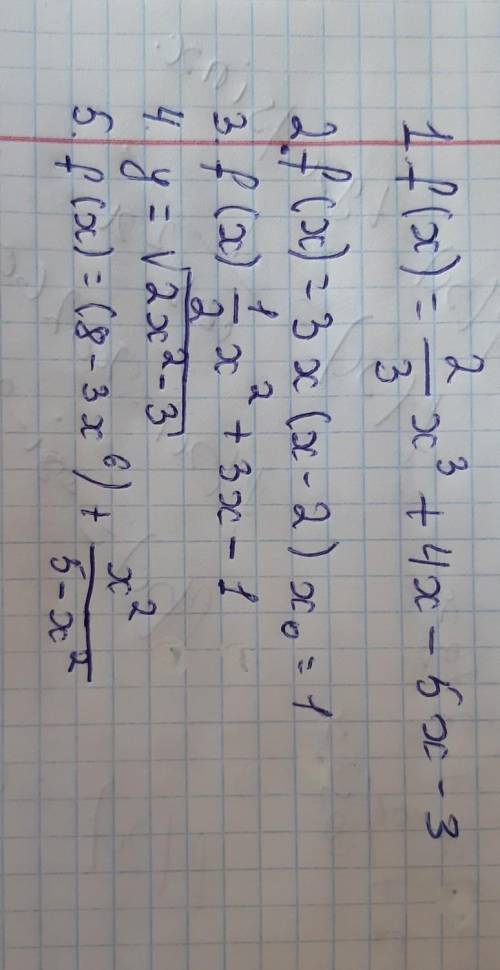 1. f(x) = 2/3 x³ + 4x - 5x - 3
2. f(x) = 3x(x-2) x₀ = 1
3. f(x) 1/2 x² + 3x - 1
4. y = √(2x² - 3)
5. f(x) = (8 - 3x⁶) + x²/(5 - x²)